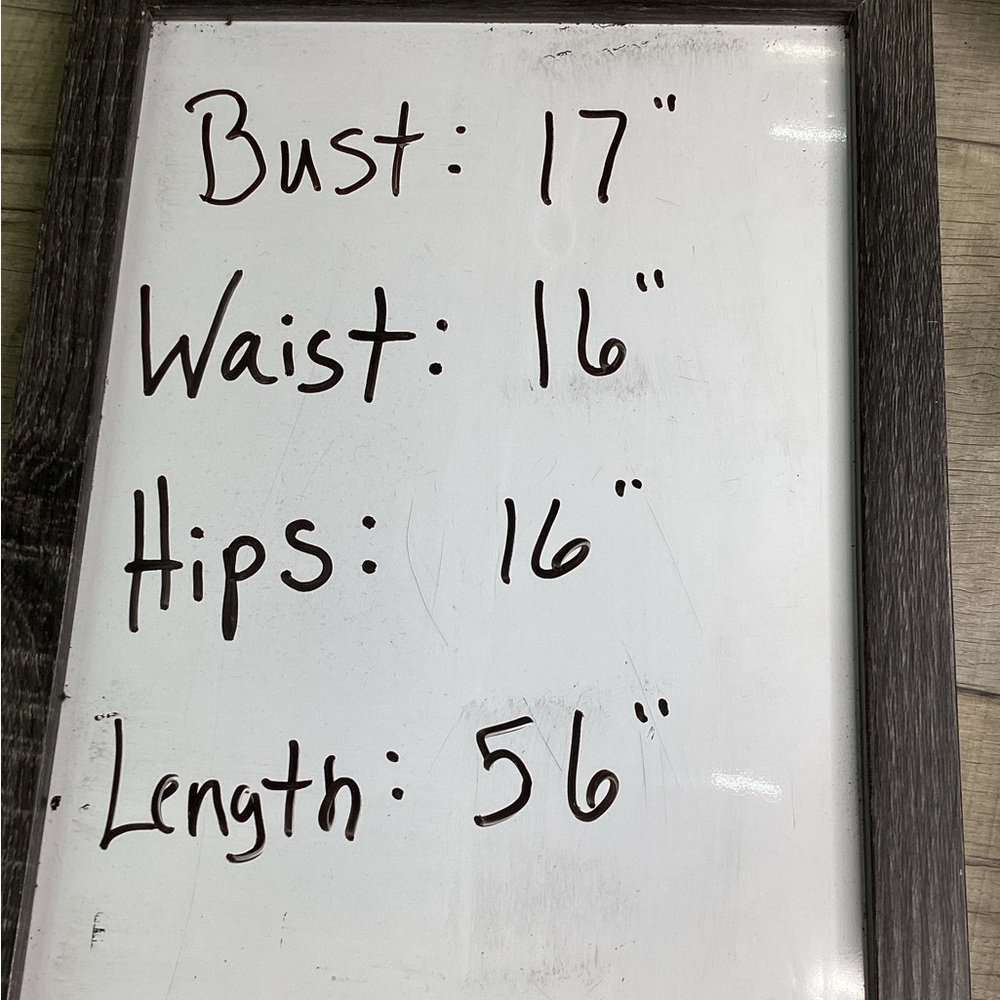 Bust: 17"
Waist: 16"
Hips: 16"
Length: 56"